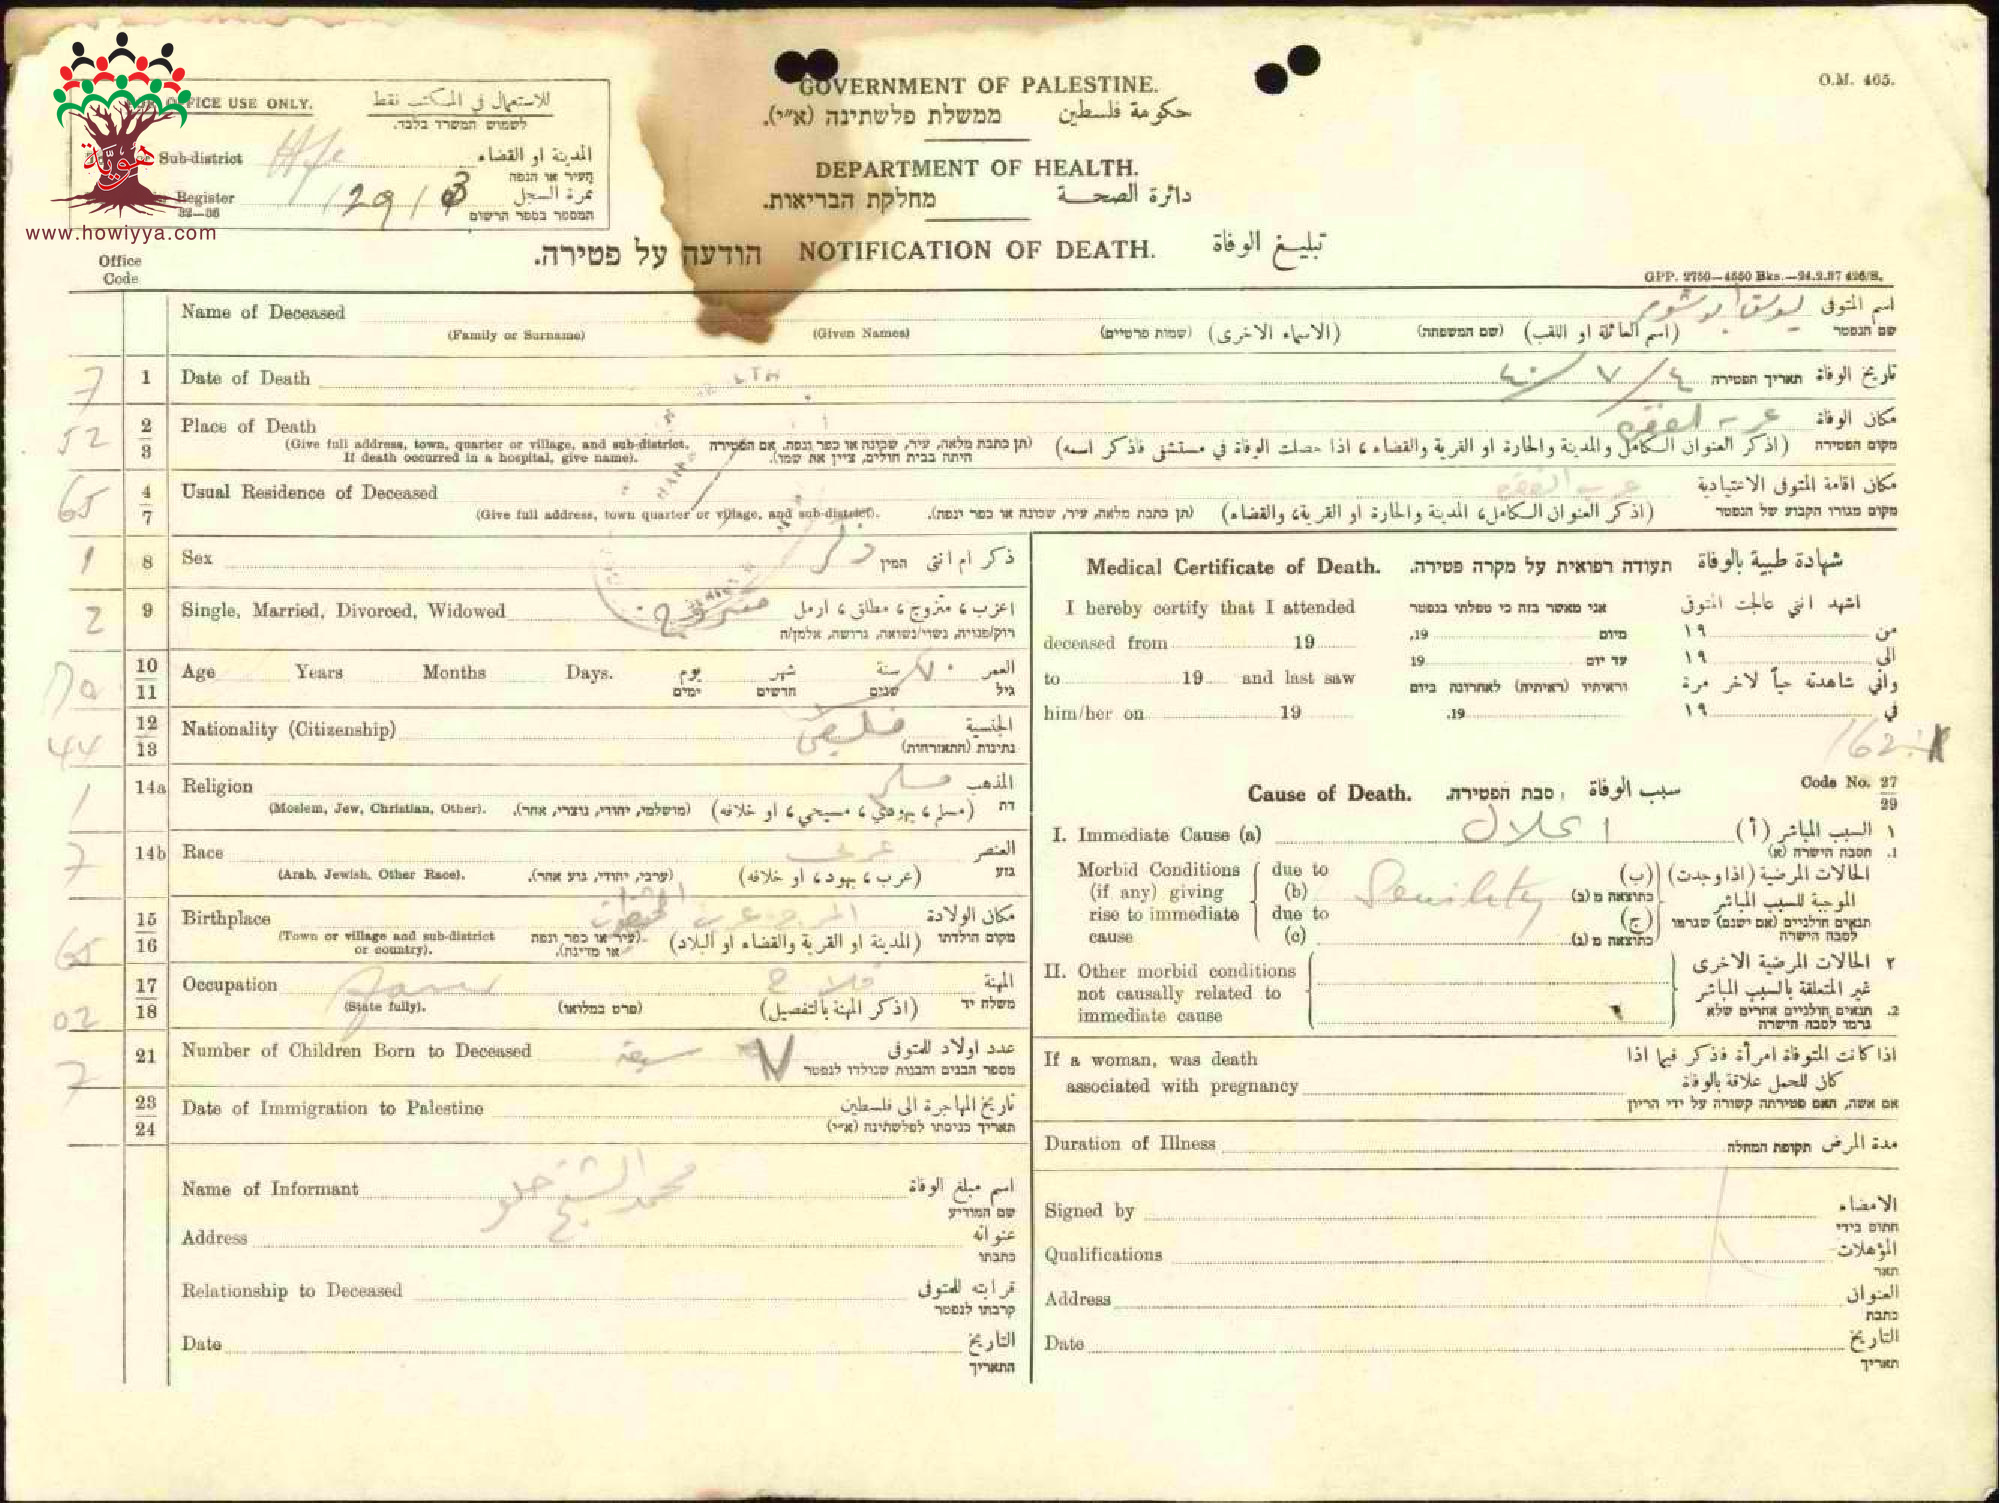 O.M. 465.
GOVERNMENT OF PALESTINE.
ממשלת פלשתינה (א״י). حكومة فلسطين
DEPARTMENT OF HEALTH.
מחלקת הבריאות. دائرة الصحة
OFFICE USE ONLY. للاستعمال في المكتب فقط
לשמוש המשרד בלבד.
Sub-district المدينة او القضاء
העיר או הנפה
Register نمرة السجل
המספר בספר הרשום
هوية
www.howiyya.com
הודעה על פטירה. NOTIFICATION OF DEATH. تبليغ الوفاة
Office
Code
GPP. 2750—4550 Bks.—24.2.37 426/S.
Name of Deceased يوسف ابو اسم المتوفى
(Family or Surname) (Given Names) (שמות פרטיים) (الاسماء الاخرى) (שם המשפחה) (اسم العائلة او اللقب) שם הנפטר
7 1 Date of Death ٤/٧/٤٠ תאריך הפטירה تاريخ الوفاة
52 2 3 Place of Death عرب الفقرا مكان الوفاة
(Give full address, town, quarter or village, and sub-district. תן כתבת מלאה, עיר, שכונה או כפר ונפה. אם הפטירה (اذكر العنوان الكامل والمدينة والحارة او القرية والقضاء، اذا حصلت الوفاة في مستشفى فاذكر اسمه) מקום הפטירה
If death occurred in a hospital, give name). היתה בבית חולים, ציין את שמו).
65 4 7 Usual Residence of Deceased عرب الفقرا مكان اقامة المتوفى الاعتيادية
(Give full address, town quarter or village, and sub-district). (תן כתבת מלאה, עיר, שכונה או כפר ונפה). (اذكر العنوان الكامل، المدينة والحارة او القرية، والقضاء) מקום מגורו הקבוע של הנפטר
1 8 Sex ذكر המין ذكر ام انثى
2 9 Single, Married, Divorced, Widowed متزوج اعزب، متزوج، مطلق، ارمل
רוק/פנויה, נשוי/נשואה, גרושה, אלמן/ה
70 10 11 Age Years Months Days. يوم شهر سنة ٧٠ العمر
ימים חדשים שנים גיל
44 12 13 Nationality (Citizenship) الجنسية
נתינות (התאזרחות)
1 14a Religion مسلم المذهب
(Moslem, Jew, Christian, Other). (מושלמי, יהודי, נוצרי, אחר). (مسلم، يهودي، مسيحي، او خلافه) דת
7 14b Race عربي العنصر
(Arab, Jewish, Other Race). (ערבי, יהודי, גזע אחר). (عرب، يهود، او خلافه) גזע
65 15 16 Birthplace مكان الولادة
(Town or village and sub-district (עיר או כפר ונפה (المدينة او القرية والقضاء او البلاد) מקום הולדתו
or country). או מדינה).
02 17 18 Occupation فلاح المهنة
(State fully). (פרט במלואו) (اذكر المهنة بالتفصيل) משלח יד
7 21 Number of Children Born to Deceased سبعة ٧ عدد اولاد المتوفى
מספר הבנים והבנות שנולדו לנפטר
23 24 Date of Immigration to Palestine تاريخ المهاجرة الى فلسطين
תאריך כניסתו לפלשתינה (א״י)
Name of Informant محمد الشيخ اسم مبلغ الوفاة
שם המודיע
Address عنوانه
כתבתו
Relationship to Deceased قرابته للمتوفى
קרבתו לנפטר
Date التاريخ
התאריך
Medical Certificate of Death. תעודה רפואית על מקרה פטירה. شهادة طبية بالوفاة
I hereby certify that I attended אני מאשר בזה כי טפלתי בנפטר اشهد انني عالجت المتوفى
deceased from 19 19, מיום ١٩ من
to 19 and last saw 19 עד יום ١٩ الى
וראיתיו (ראיתיה) לאחרונה ביום واني شاهدته حياً لاخر مرة
him/her on 19 19. ١٩ في
162
Cause of Death. סבת הפטירה. سبب الوفاة Code No. 27 29
I. Immediate Cause (a) انحلال (أ) السبب المباشر ١
(א) הסבה הישרה 1.
Morbid Conditions due to (ب) الحالات المرضية (اذا وجدت)
(if any) giving (b) Senility כתוצאה מ (ב) الموجبة للسبب المباشر
rise to immediate due to (ج) תנאים חולניים (אם ישנם) שגרמו
cause (c) כתוצאה מ (ג) לסבה הישרה
II. Other morbid conditions ٢ الحالات المرضية الاخرى
not causally related to غير المتعلقة بالسبب المباشر
immediate cause 2. תנאים חולניים אחרים שלא
גרמו לסבה הישרה
If a woman, was death اذا كانت المتوفاة امرأة فذكر فيما اذا
associated with pregnancy كان للحمل علاقة بالوفاة
אם אשה, האם פטירתה קשורה על ידי הריון
Duration of Illness תקופת המחלה مدة المرض
Signed by الامضاء
חתום בידי
Qualifications المؤهلات
תאר
Address العنوان
כתבת
Date التاريخ
תאריך